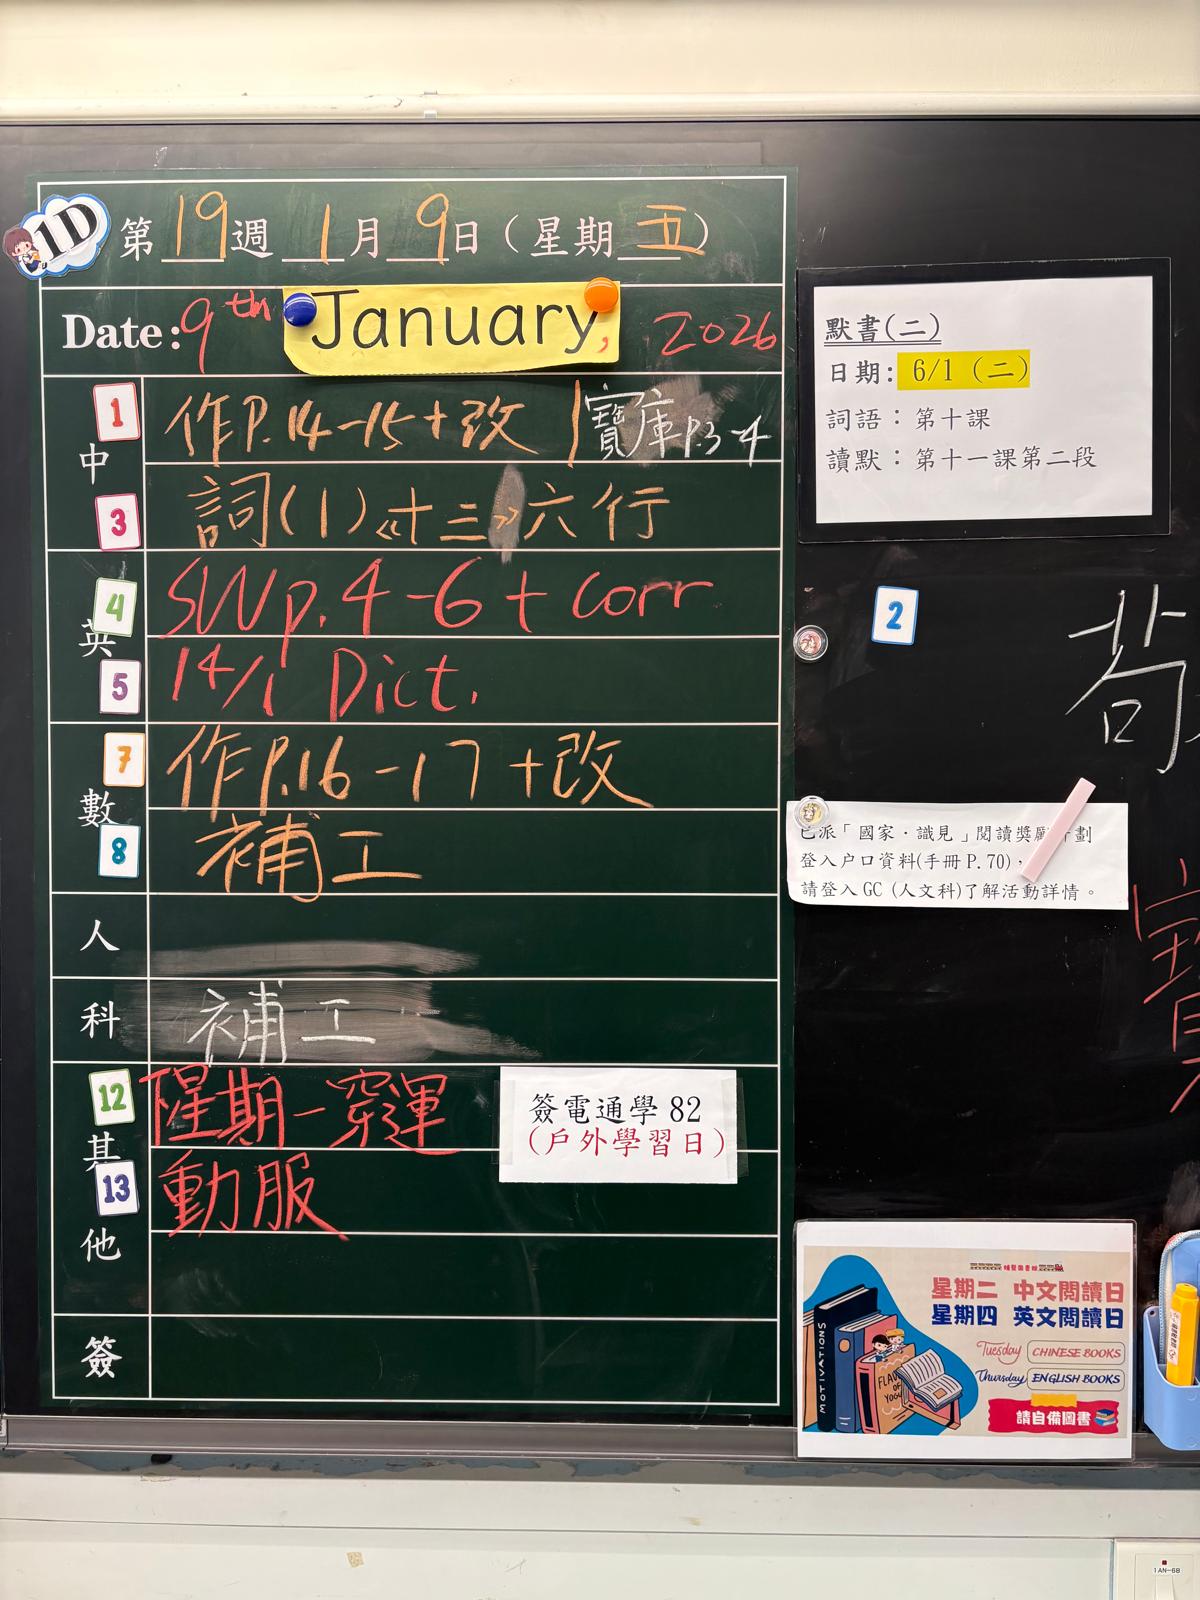 1D
第19週 1月9日（星期五）
Date: 9th January, 2026
中
1 作P.14-15+改 寶庫p.3-4
3 詞(1)《十三》六行
英
4 SW p.4-6 + corr
5 14/1 Dict.
數
7 作P.16-17+改
8 補工
人
科 補工
其他
12 星期一穿運
13 動服
簽電通學 82
（戶外學習日）
簽
默書(二)
日期: 6/1 (二)
詞語：第十課
讀默：第十一課第二段
2
已派「國家．識見」閱讀獎勵計劃
登入户口資料(手冊 P.70)，
請登入 GC (人文科)了解活動詳情。
星期二 中文閱讀日
星期四 英文閱讀日
Tuesday CHINESE BOOKS
Thursday ENGLISH BOOKS
請自備圖書
MOTIVATIONS
1AN-6B